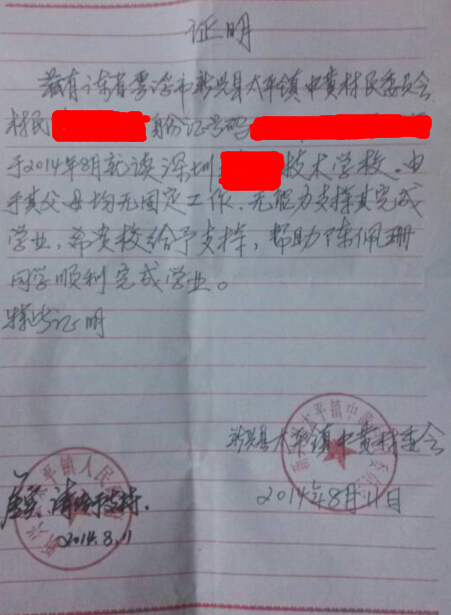 证明
兹有广东省云浮市新兴县太平镇中黄村民委员会
村民 身份证号码
于2014年8月就读深圳 技术学校。由
于其父母均无固定工作,无能力支撑其完成
学业,希贵校给予支持,帮助陈佩珊
同学顺利完成学业。
特此证明
新兴县太平镇中黄村委会
2014年8月11日
太平镇人民
属实,请给予支持.
2014.8.11